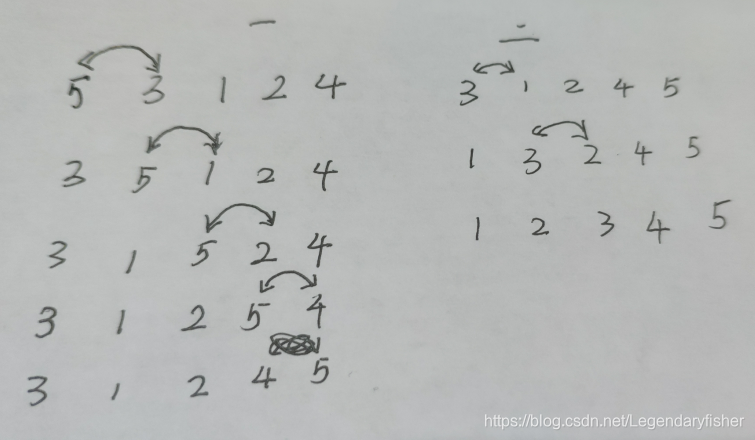 一
5 3 1 2 4
3 5 1 2 4
3 1 5 2 4
3 1 2 5 4
3 1 2 4 5
二
3 1 2 4 5
1 3 2 4 5
1 2 3 4 5
https://blog.csdn.net/Legendaryfisher